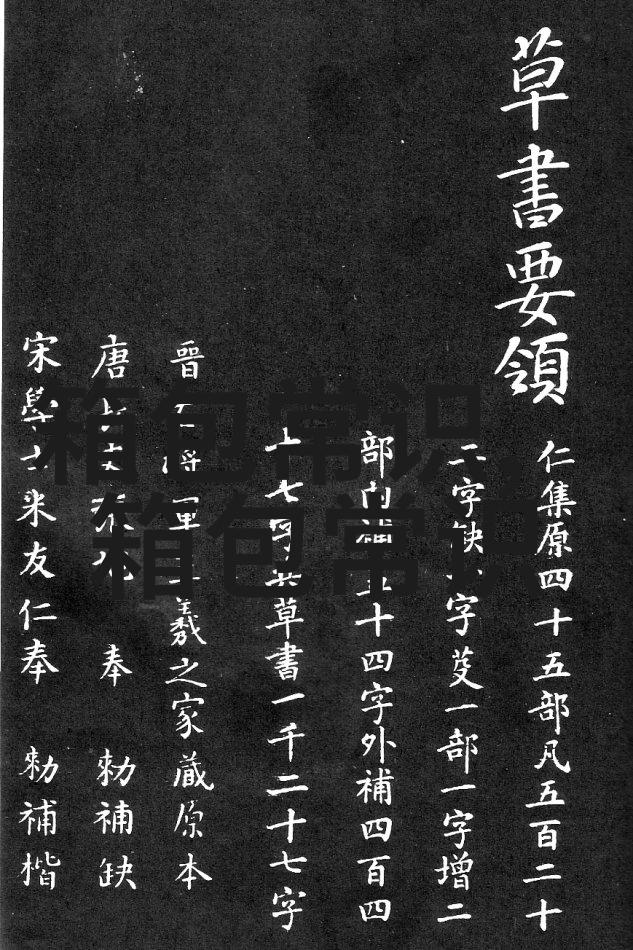 草書要領
仁集原四十五部凡五百二十
二字缺字芟一部一字增二
部內補五十四字外補四百四
十七字共草書一千二十七字
晉右將軍王羲之家藏原本
唐奉 勑補缺
宋學士米友仁奉 勑補楷
箱包常识
箱包常识